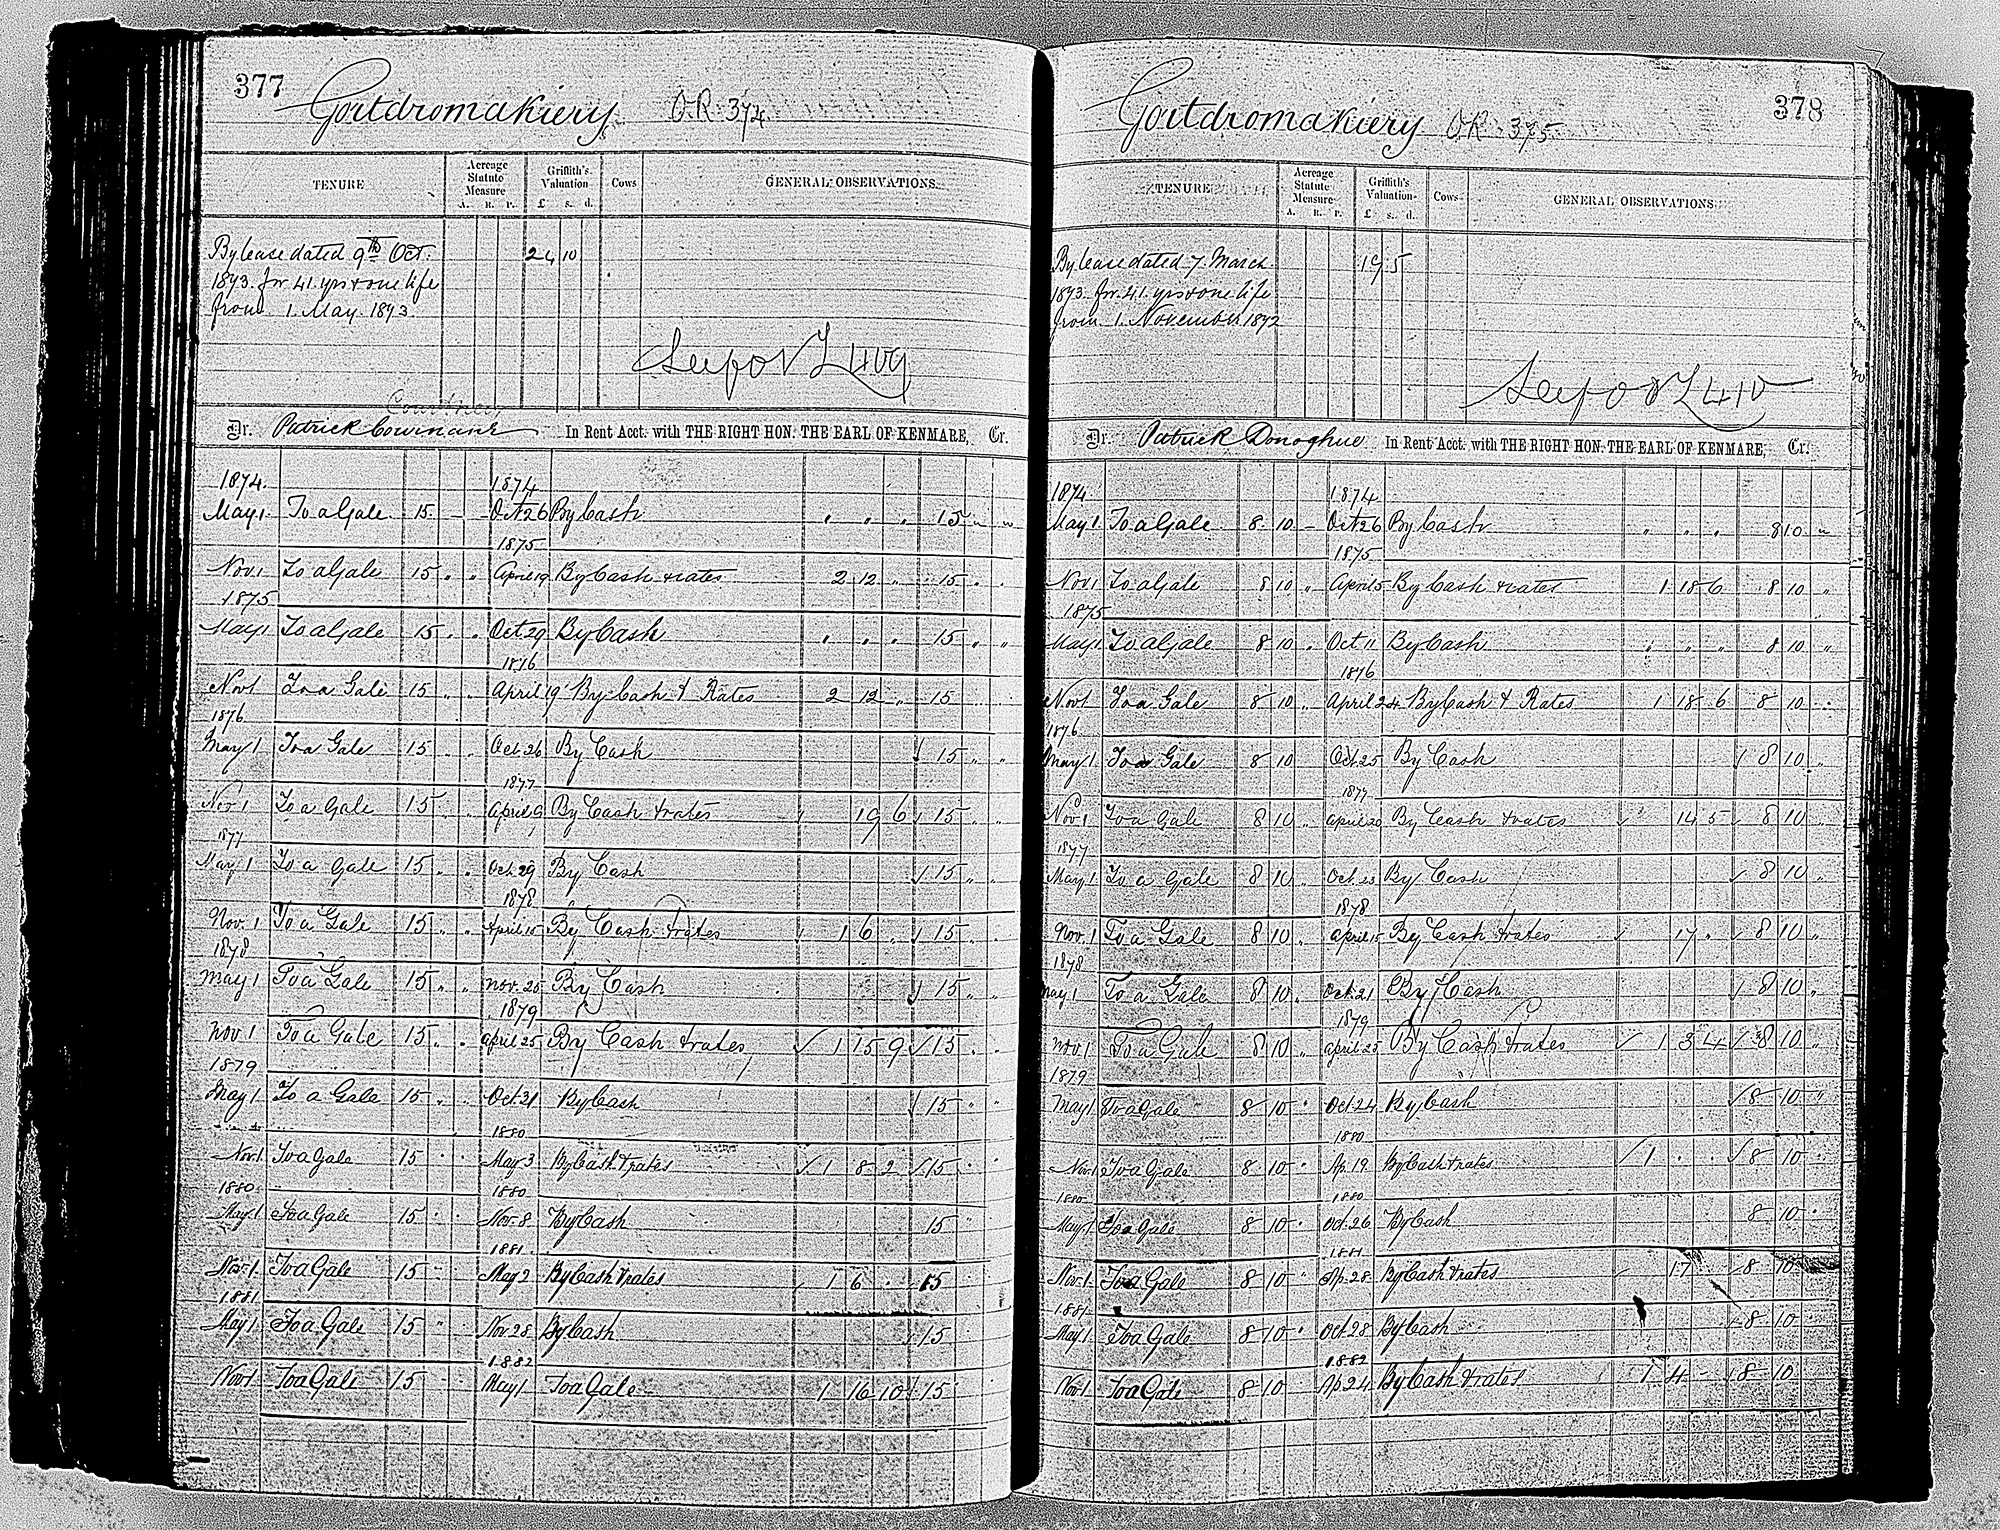 377
Gortdromakiery O.R. 374
TENURE
Acreage Statute Measure
A. R. P.
Griffith's Valuation
£ s. d.
Cows
GENERAL OBSERVATIONS
By lease dated 9th Oct. 24 10
1873 for 41 yrs & one life
from 1 May 1873.
See for L 409
Courtney
Dr. Patrick In Rent Acct. with THE RIGHT HON. THE EARL OF KENMARE, Cr.
1874. 1874
May 1 To a Gale 15 - - Oct 26 By Cash " " " 15 " "
1875
Nov. 1 To a Gale 15 " " April 19 By Cash & rates 2 12 " 15 " "
1875
May 1 To a Gale 15 " " Oct 29 By Cash " " " 15 " "
1876
Nov 1 To a Gale 15 " " April 19 By Cash & Rates 2 12 " 15 " "
1876
May 1 To a Gale 15 " " Oct. 26 By Cash ✓ 15 " "
1877
Nov 1 To a Gale 15 " " April 9 By Cash & rates 19 6 ✓ 15 " "
1877
May 1 To a Gale 15 " " Oct. 29 By Cash ✓ 15 " "
1878
Nov. 1 To a Gale 15 " " April 15 By Cash & rates ✓ 1 6 " ✓ 15 " "
1878
May 1 To a Gale 15 " " Nov. 25 By Cash ✓ 15 " "
1879
Nov 1 To a Gale 15 " " April 25 By Cash & rates ✓ 1 15 9 ✓ 15 " "
1879
May 1 To a Gale 15 " " Oct. 31 By Cash ✓ 15 " "
1880
Nov. 1 To a Gale 15 " " May 3 By Cash & rates ✓ 1 8 2 ✓ 15 " "
1880 1880
May 1 To a Gale 15 " " Nov. 8 By Cash 15 "
1881
Nov. 1 To a Gale 15 " May 2 By Cash & rates 1 6 " 15
1881
May 1 To a Gale 15 " Nov 28 By Cash 15
1882
Nov 1 To a Gale 15 May 1 To a Gale 1 16 10 15
378
Gortdromakiery O.R. 375
TENURE
Acreage Statute Measure
A. R. P.
Griffith's Valuation
£ s. d.
Cows
GENERAL OBSERVATIONS
By lease dated 7 March 19 5
1873 for 41 yrs & one life
from 1 November 1872
See for L 410
Dr. Patrick Donoghue In Rent Acct. with THE RIGHT HON. THE EARL OF KENMARE, Cr.
1874 1874
May 1 To a Gale 8 10 - Oct 26 By Cash " " " 8 10 "
1875
Nov 1 To a Gale 8 10 " April 5 By Cash & rates 1 18 6 8 10 "
1875
May 1 To a Gale 8 10 " Oct 11 By Cash " " " 8 10 "
1876
Nov 1 To a Gale 8 10 " April 24 By Cash & Rates 1 18 6 8 10 "
1876
May 1 To a Gale 8 10 Oct. 25 By Cash ✓ 8 10 "
1877
Nov 1 To a Gale 8 10 " April 20 By Cash & rates ✓ 14 5 ✓ 8 10 "
1877
May 1 To a Gale 8 10 " Oct. 23 By Cash ✓ 8 10 "
1878
Nov. 1 To a Gale 8 10 " April 15 By Cash & rates ✓ 17 " ✓ 8 10 "
1878
May 1 To a Gale 8 10 " Oct. 21 By Cash ✓ 8 10 "
1879
Nov 1 To a Gale 8 10 " April 25 By Cash & rates ✓ 1 3 4 ✓ 8 10 "
1879
May 1 To a Gale 8 10 " Oct 24 By Cash ✓ 8 10 "
1880
Nov. 1 To a Gale 8 10 " Ap. 19 By Cash & rates ✓ 1 " " ✓ 8 10 "
1880 1880
May 1 To a Gale 8 10 " Oct. 26 By Cash 8 10 "
1881
Nov. 1 To a Gale 8 10 " Ap. 28 By Cash & rates ✓ 17 ✓ 8 10
1881
May 1 To a Gale 8 10 " Oct. 28 By Cash ✓ 8 10
1882
Nov. 1 To a Gale 8 10 Ap 24 By Cash & rates 1 4 - 8 10